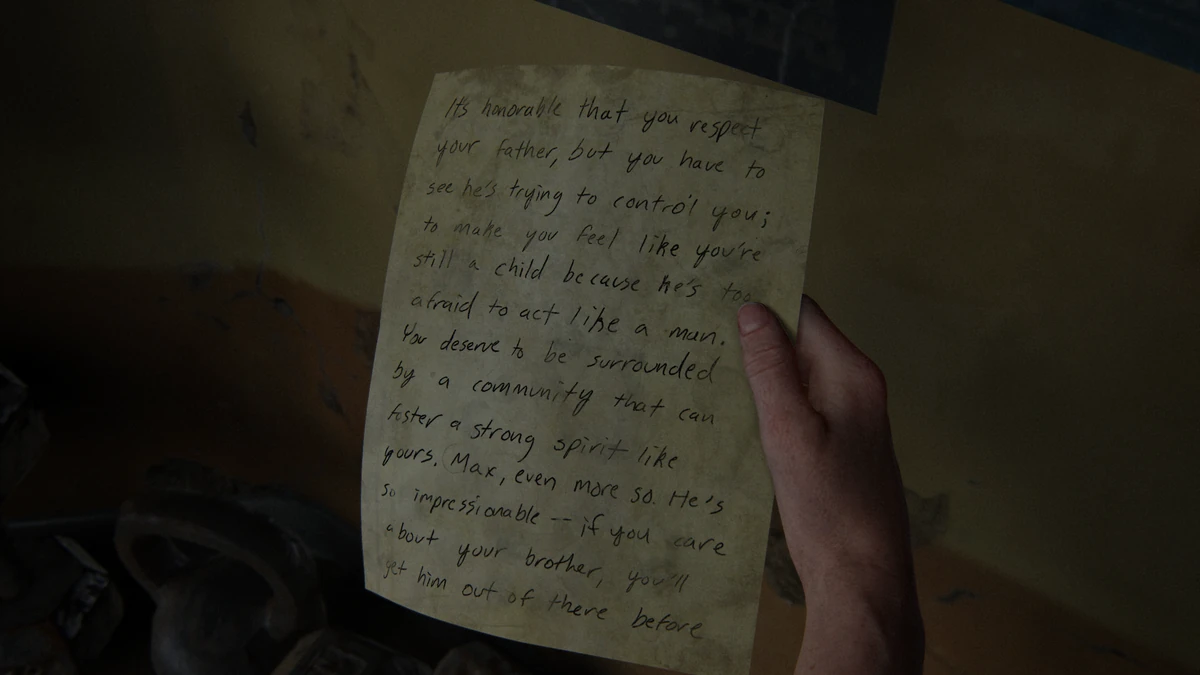 It's honorable that you respect
your father, but you have to
see he's trying to control you;
to make you feel like you're
still a child because he's too
afraid to act like a man.
You deserve to be surrounded
by a community that can
foster a strong spirit like
yours. Max, even more so. He's
so impressionable -- if you care
about your brother, you'll
get him out of there before